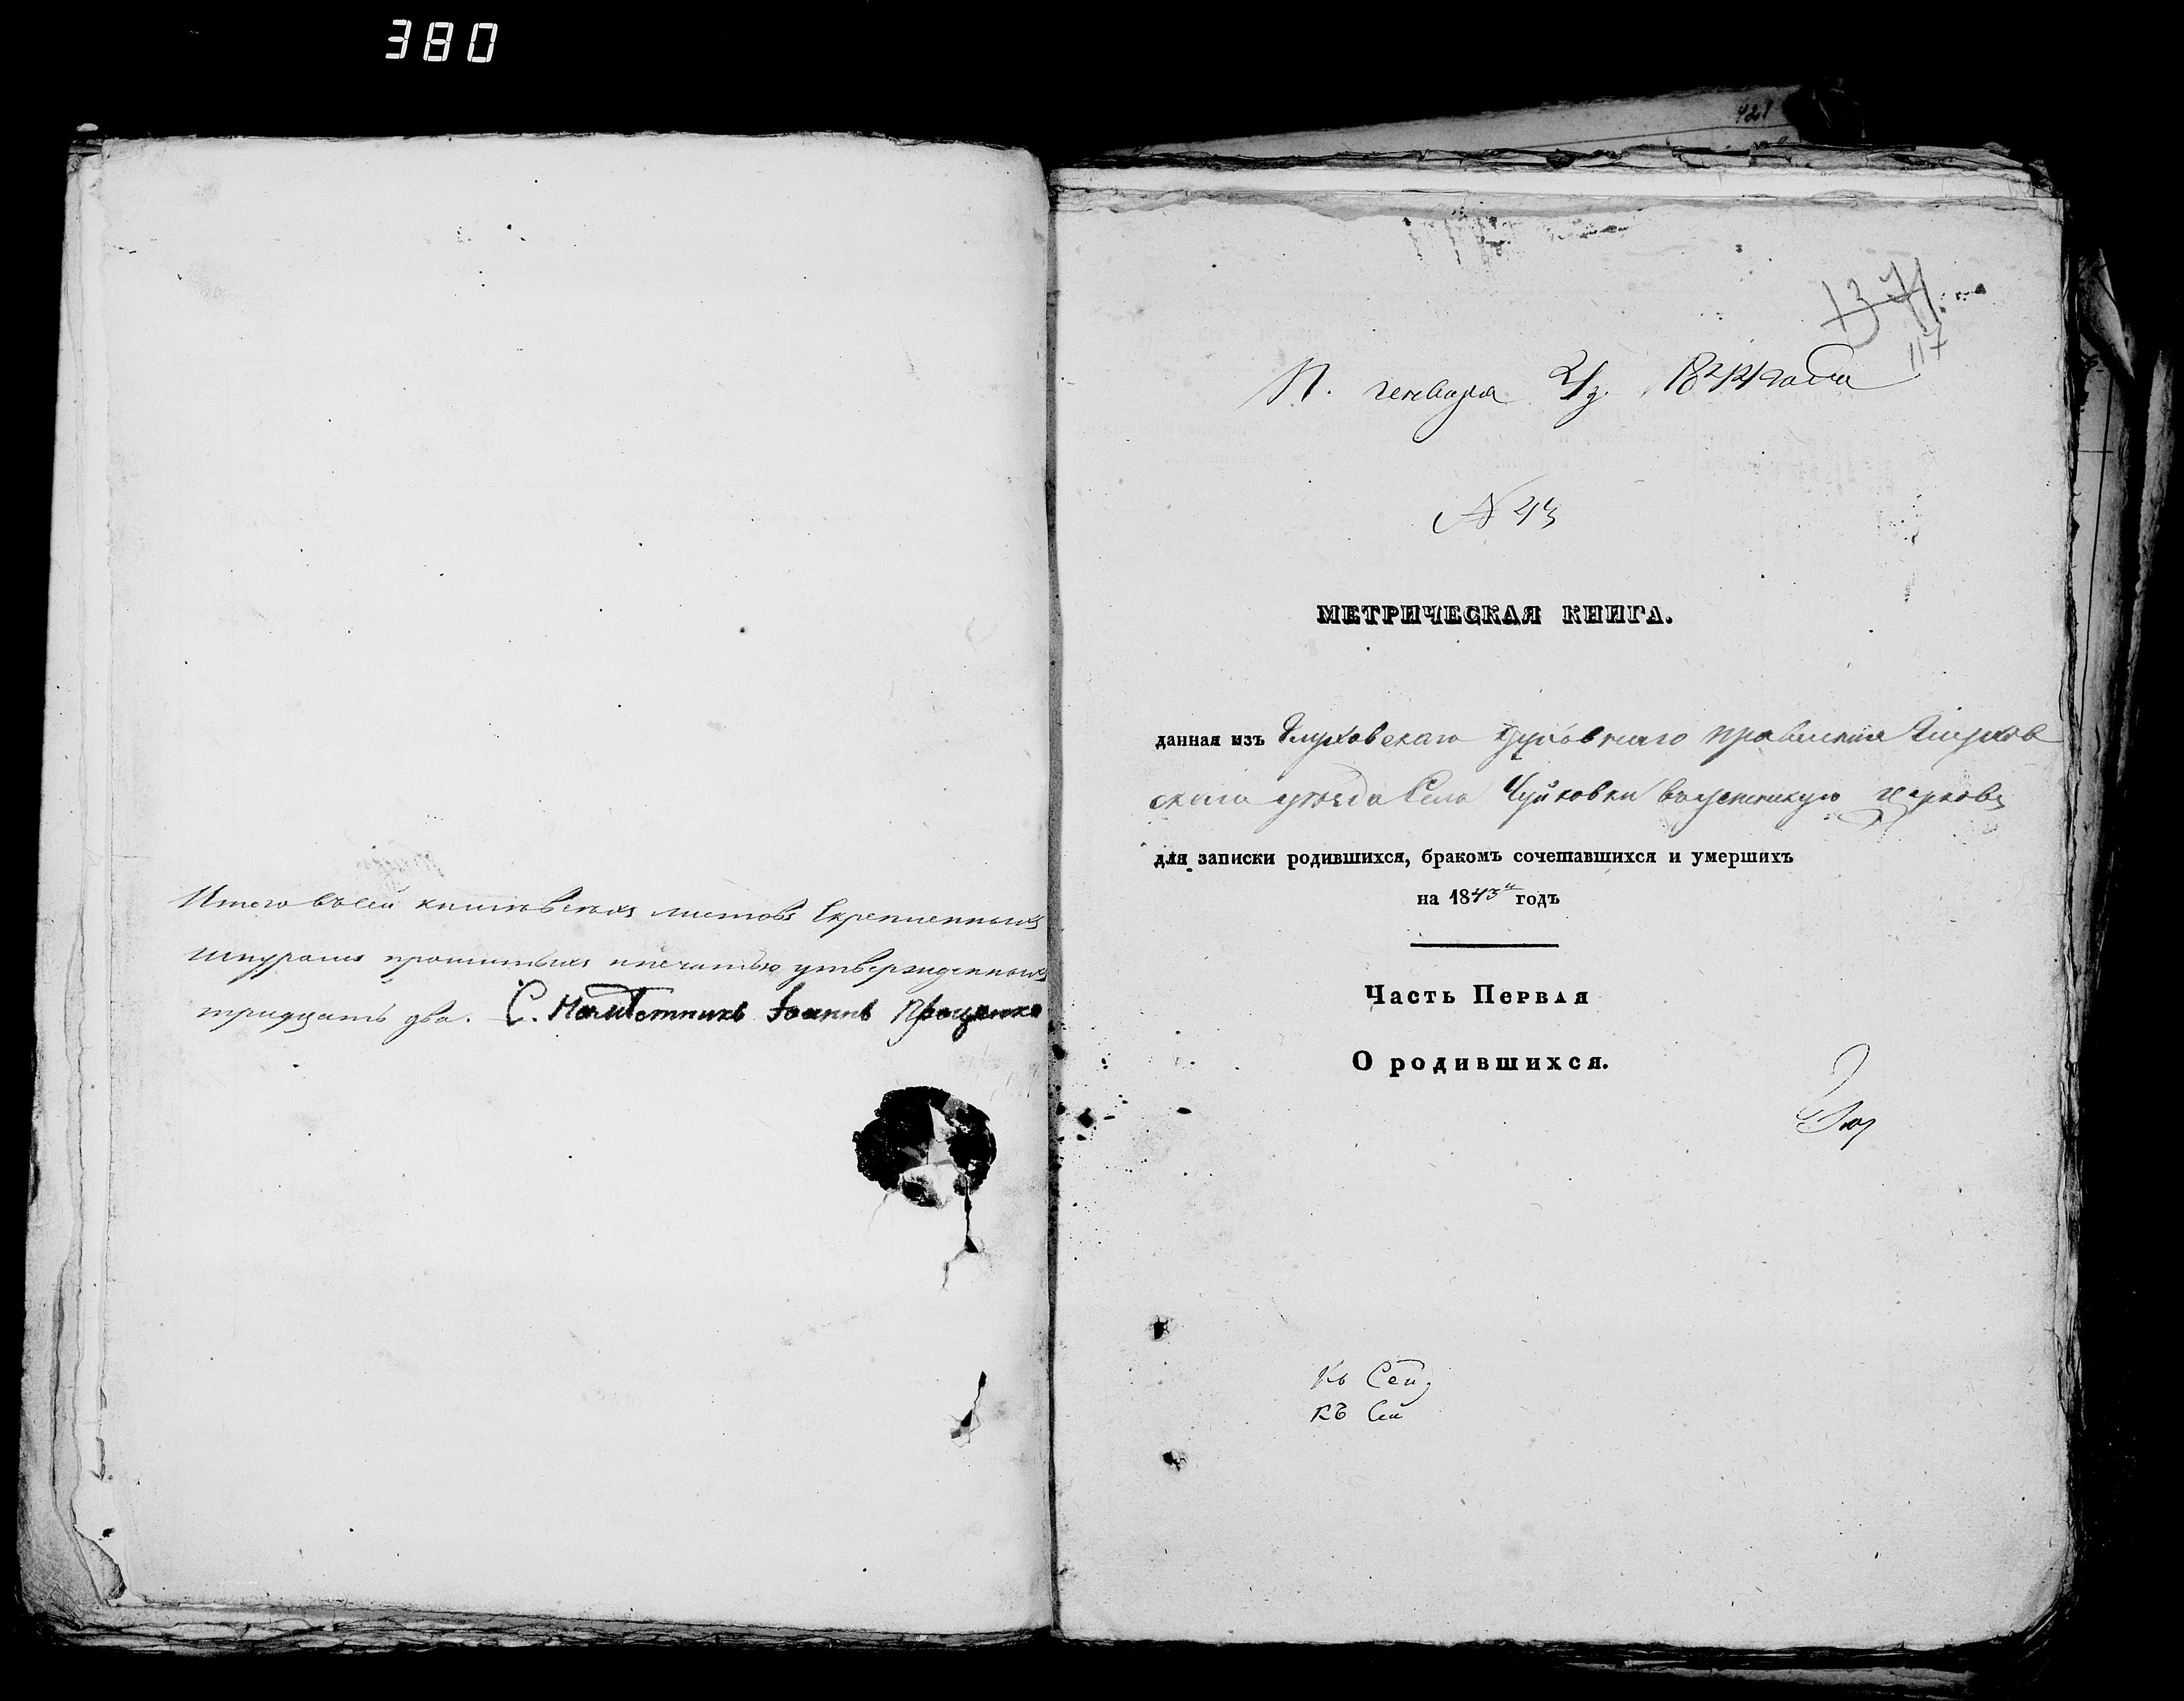 380
421
Итого въ сей книгѣ всѣхъ листовъ скрепленныхъ
шнуромъ прошитыхъ и печатью утвержденныхъ
тридцать два. С. Намѣстникъ Іоаннъ Проценко
1371
117
П. генваря 1844 года
N 43
МЕТРИЧЕСКАЯ КНИГА.
данная изъ Глуховскаго Духовнаго правленія Глухов
скаго уѣзда Села Чуйковки въ успенскую церковь
для записки родившихся, бракомъ сочетавшихся и умершихъ
на 1843й годъ
Часть Первая
О родившихся.
Къ Сей
КЪ Сей